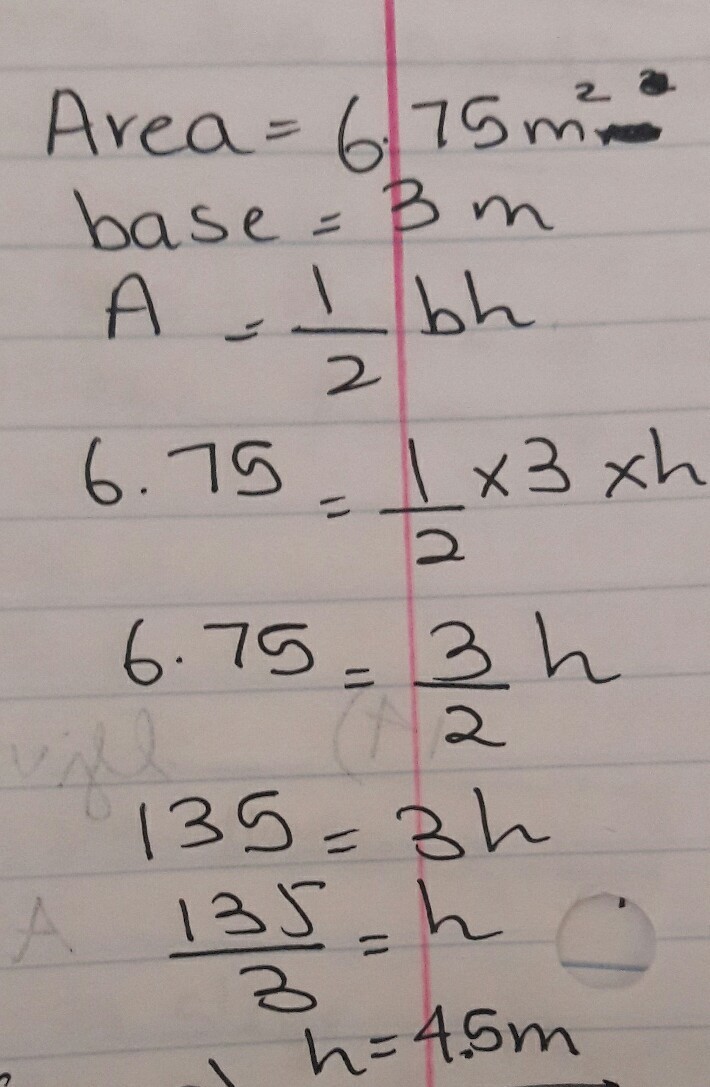 Area = 6.75m²
base = 3 m
A = 1/2 bh
6.75 = 1/2 × 3 × h
6.75 = 3/2 h
135 = 3h
135/3 = h
h = 4.5m